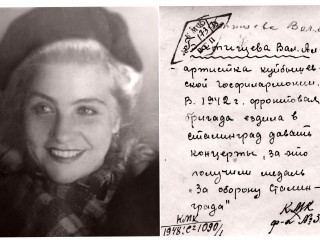 Вал.
КМК
173/39
Вал. Ал
артистка куйбышев-
ской госфилармонии.
В 1942 г. фронтовая
бригада ездила в
сталинград давать
концерты, за это
получили медаль
"За оборону Сталин-
града"
КМК
ф-л
КМК
1948: с=1090/